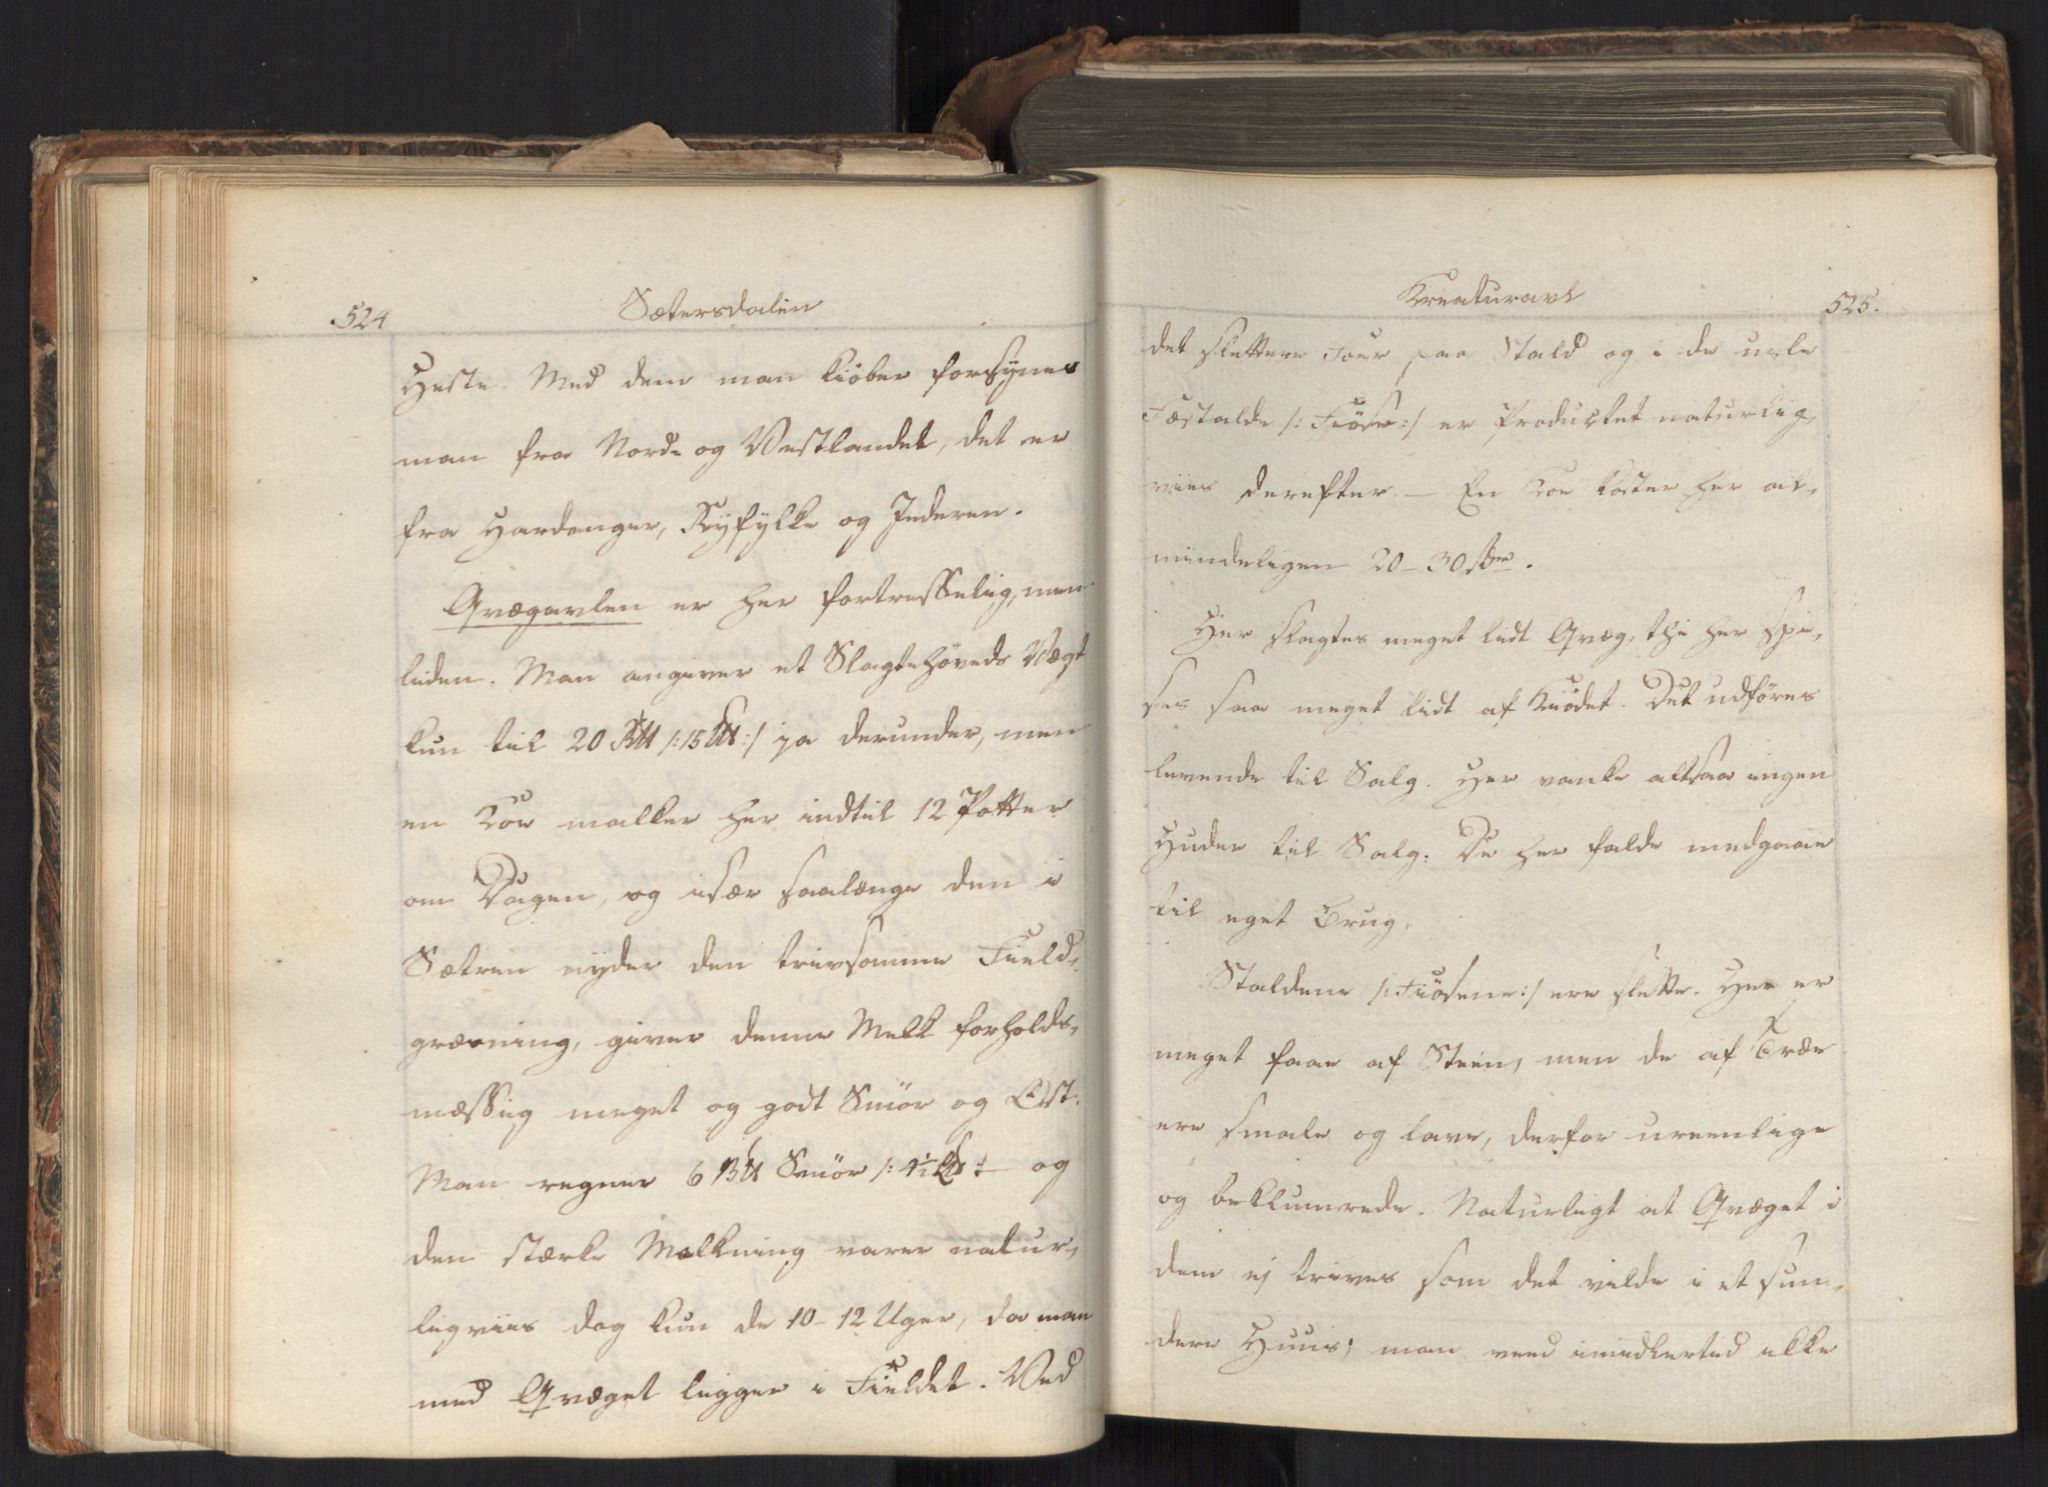 524
Sætersdalen
Heste. Med dem man kiöber forsÿnes
man fra Nord- og Vestlandet, det er
fra Hardanger, Ryfylke og Jederen.
Qvægavlen er her fortreffelig, men
liden. Man angiver et Slagtehöveds Vægt
kun til 20 B℔ /: 15 L℔ :/ ja derunder, men
en Koe malker her indtil 12 Potter
om Dagen, og især saalænge den i
Sætren nyder den trivsomme Field-
græsning, giver denne Melk forholds-
mæssig meget og godt Smör og Ost.
Man regner 6 B℔ Smör /: 4½ L℔ :/ og
den stærke Malkning varer natur-
ligviis dog kun de 10-12 Uger, da man
med Qvæget ligger i Fieldet. Ved
Kreaturavl
525.
det slettere Foer paa Stald og i de usle
Fæstalde /: Fiöse :/ er Productet naturlig-
viis derefter. – En Koe koster her al-
mindeligen 20-30 Sdr.
Her slagtes meget lidt Qvæg, thi her spi-
ses saa meget lidt af Kiödet. Det udföres
levende til Salg. Her vanke altsaa ingen
Huder til Salg. De her falde medgaae
til eget Brug.
Staldene /: Fiösene :/ ere slette. Her er
meget faae af Steen, men de af Træe
ere smale og lave, derfor ureenlige
og beklumrede. Naturligt at Qvæget i
dem ej trives som det vilde i et sun-
dere Huus; man veed imidlertid ikke